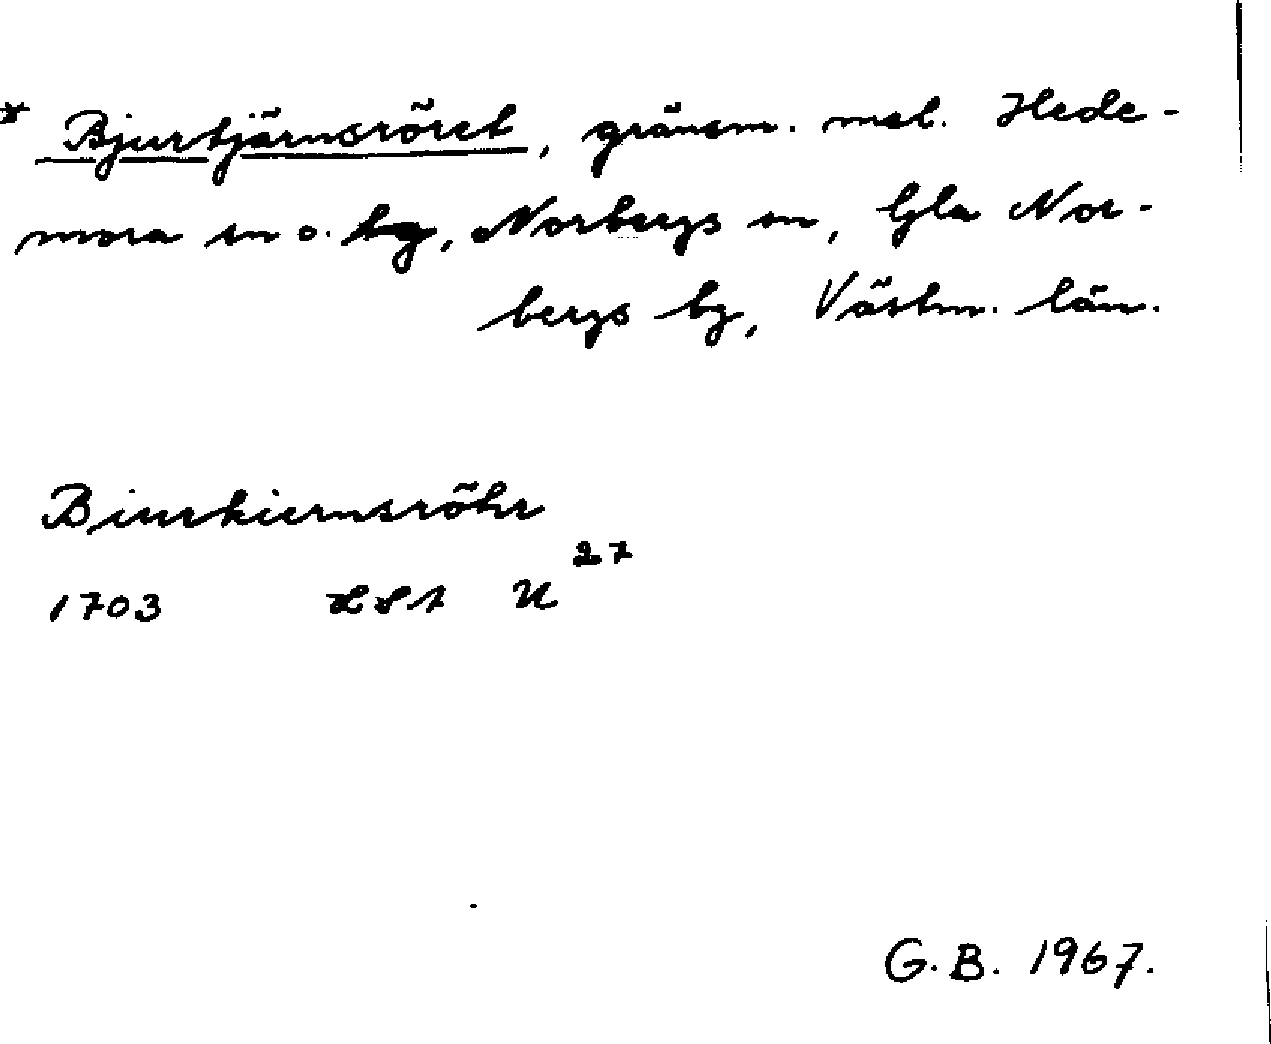 * Bjurtjärnsröret, gränsm. mel. Hede-
mora sn o. hg, Norbergs sn, Gla Nor-
bergs bg, Västm. län.
Biurkiernsröhr
1703 LSA U 27
G.B. 1967.